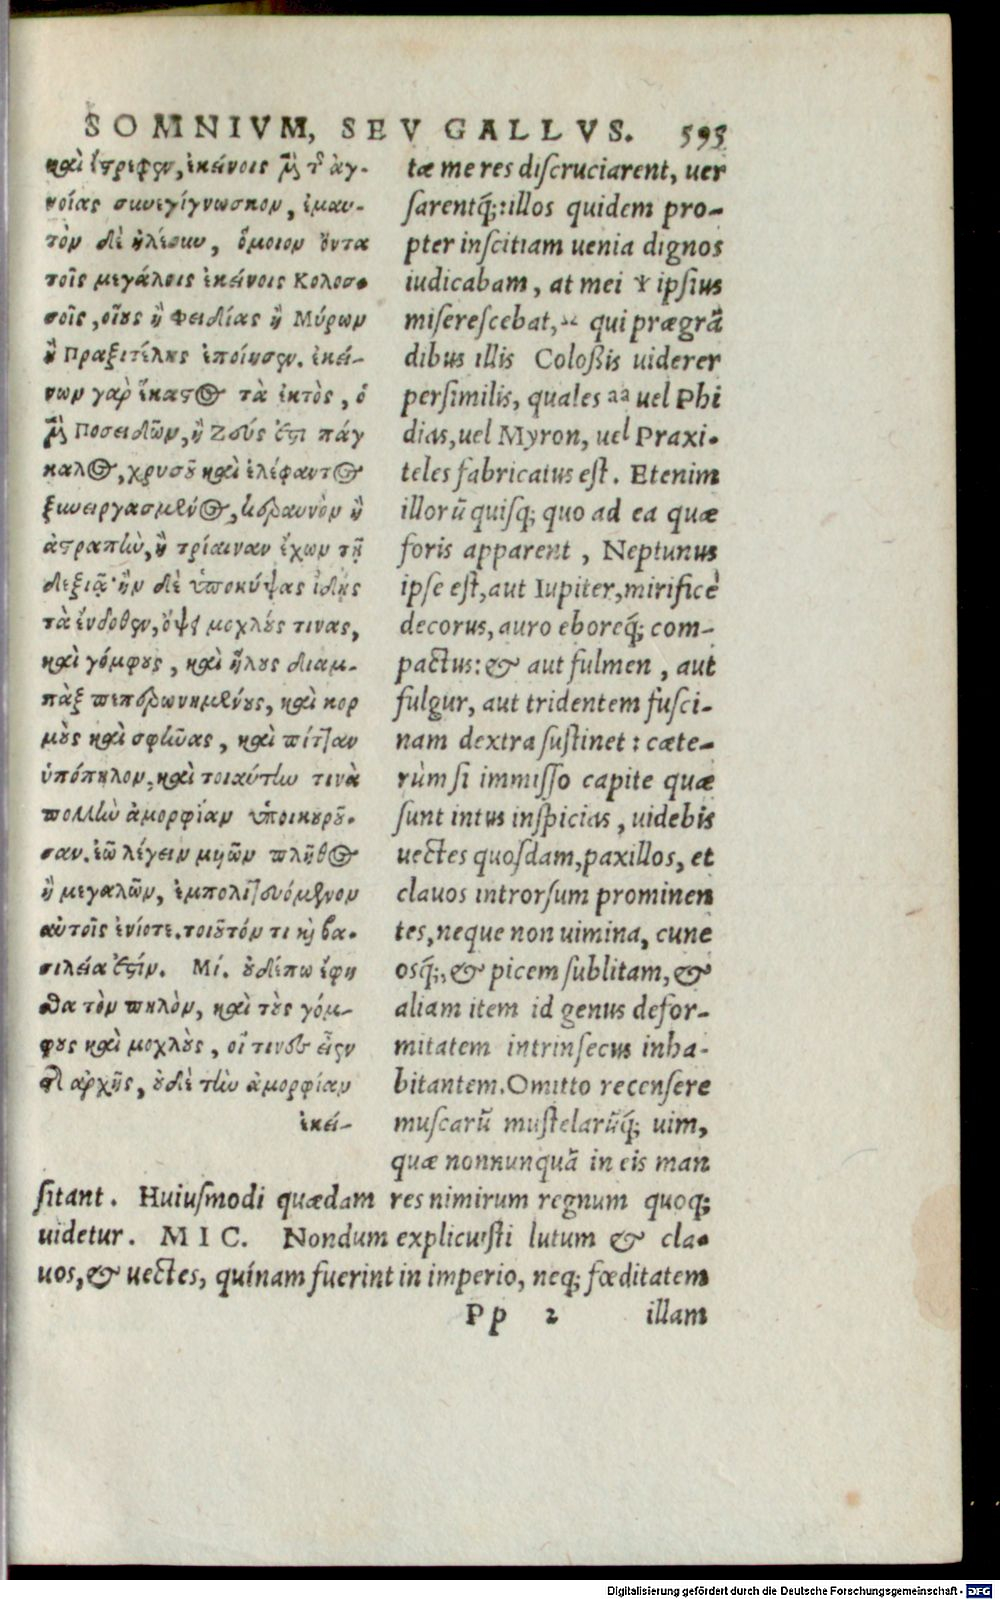 SOMNIVM, SEV GALLVS. 595
καὶ ἔστρεφον, ἐκείνοις μὲν τῆς ἀγ-
νοίας συνεγίγνωσκον, ἐμαυ-
τὸν δὲ ἠλέουν, ὅμοιον ὄντα
τοῖς μεγάλοις ἐκείνοις Κολοσ-
σοῖς, οἵους ἢ Φειδίας ἢ Μύρων
ἢ Πραξιτέλης ἐποίησεν. ἐκεί-
νων γὰρ ἕκαστος τὰ ἐκτὸς, ὁ
μὲν Ποσειδῶν, ἢ Ζεύς ἐστι πάγ
καλος, χρυσοῦ καὶ ἐλέφαντος
ξυνειργασμένος, κεραυνὸν ἢ
ἀστραπὴν, ἢ τρίαιναν ἔχων τῇ
δεξιᾷ· ἢν δὲ ὑποκύψας ἴδῃς
τὰ ἔνδοθεν, ὄψει μοχλούς τινας,
καὶ γόμφους, καὶ ἥλους διαμ-
πὰξ πεπερωνημένους, καὶ κορ
μοὺς καὶ σφῆνας, καὶ πίτταν
ὑπόπηλον, καὶ τοιαύτην τινὰ
πολλὴν ἀμορφίαν ὑποικουροῦ-
σαν. ἐῶ λέγειν μυῶν πλῆθος
ἢ μυγαλῶν, ἐμπολιτευόμενον
αὐτοῖς ἐνίοτε. τοιοῦτόν τι καὶ βα-
σιλεία ἐστίν. Μί. οὐδέπω ἔφη
σθα τὸν πηλὸν, καὶ τοὺς γόμ-
φους καὶ μοχλοὺς, οἵ τινες εἶεν
τῆς ἀρχῆς, οὐδὲ τὴν ἀμορφίαν
ἐκεί-
tæ me res discruciarent, uer
sarentq́;: illos quidem pro-
pter inscitiam uenia dignos
iudicabam, at mei ipsius
miserescebat, qui prægrã
dibus illis Coloßis uiderer
persimilis, quales aa uel Phi
dias, uel Myron, uel Praxi-
teles fabricatus est. Etenim
illorũ quisq; quo ad ea quæ
foris apparent, Neptunus
ipse est, aut Iupiter, mirificè
decorus, auro eboreq́; com-
pactus: & aut fulmen, aut
fulgur, aut tridentem fusci-
nam dextra sustinet: cæte-
rùm si immisso capite quæ
sunt intus inspicias, uidebis
uectes quosdam, paxillos, et
clauos introrsum prominen
tes, neque non uimina, cune
osq́;, & picem sublitam, &
aliam item id genus defor-
mitatem intrinsecus inha-
bitantem. Omitto recensere
muscarũ mustelarũq́; uim,
quæ nonnunquã in eis man
sitant. Huiusmodi quædam res nimirum regnum quoq;
uidetur. MIC. Nondum explicuisti lutum & cla-
uos, & uectes, quínam fuerint in imperio, neq; fœditatem
Pp 2 illam
Digitalisierung gefördert durch die Deutsche Forschungsgemeinschaft - DFG